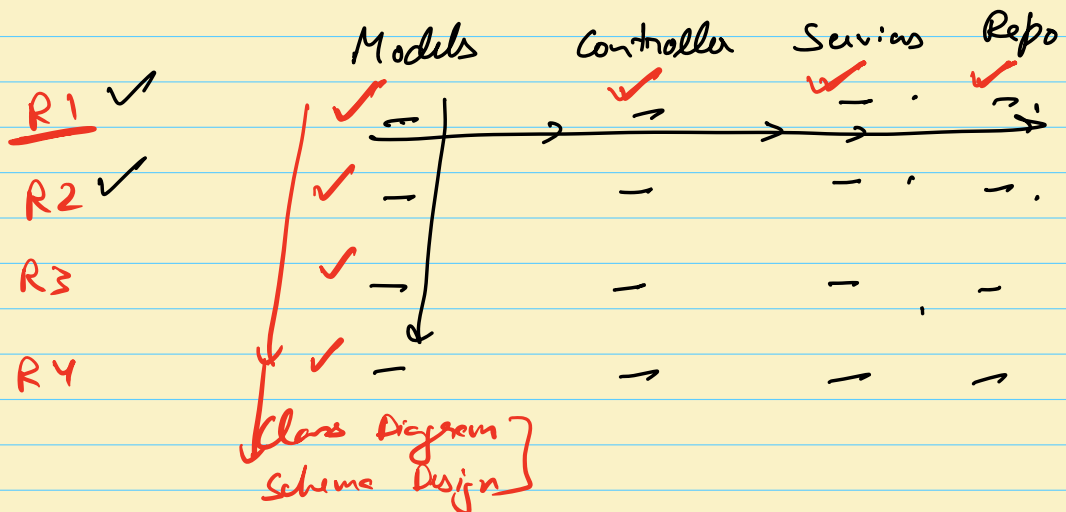 Models Controller Services Repo
R1
R2
R3
R4
Class Diagram
Schema Design